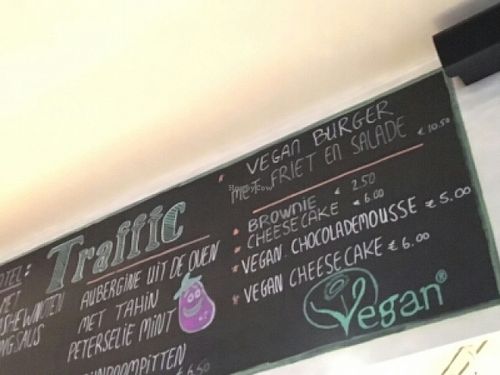 OTEL:
MET
Traffic
AUBERGINE UIT DE OVEN
MET TAHIN
PETERSELIE MINT
€6.50
* VEGAN BURGER
MET FRIET EN SALADE € 10.50
* BROWNIE € 2.50
* CHEESECAKE € 6.00
* VEGAN. CHOCOLADEMOUSSE € 5.00
* VEGAN CHEESECAKE € 6.00
Vegan®
HappyCow